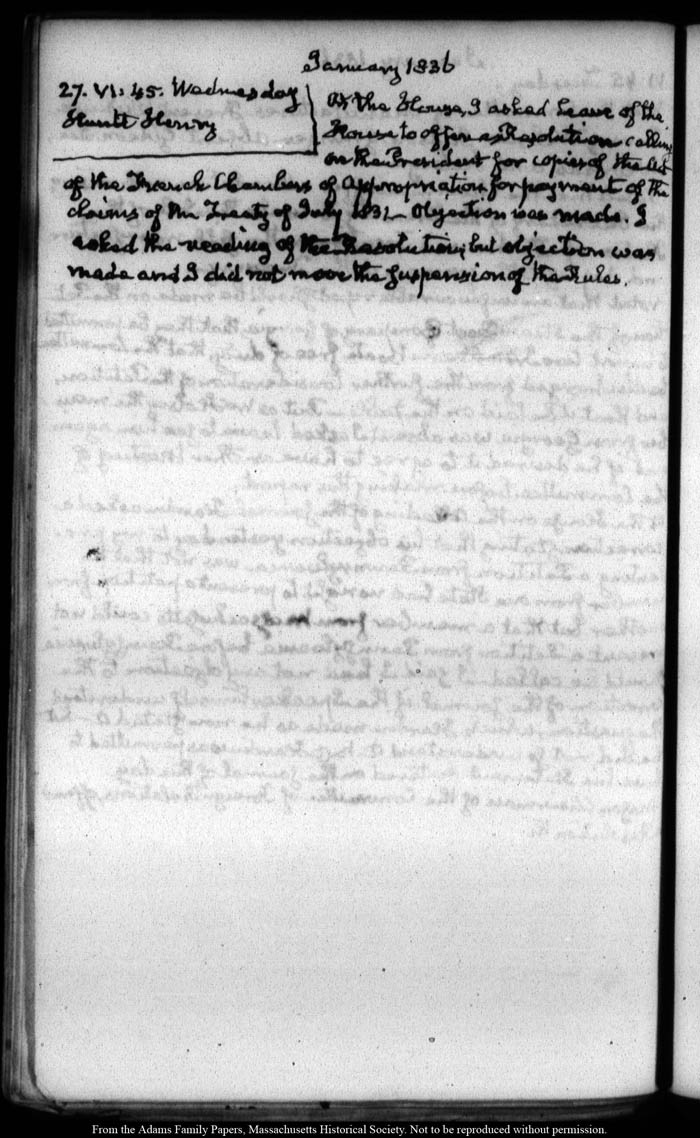 January 1836
27. VI:45. Wednesday
Huntt Henry
At the House, I asked Leave of the
House to offer a Resolution calling
on the President for copies of the Act
of the French Chambers of Appropriation for payment of the
claims of the Treaty of July 1831 Objection was made. I
asked the reading of the Resolution; but objection was
made and I did not move the suspension of the Rules.
From the Adams Family Papers, Massachusetts Historical Society. Not to be reproduced without permission.